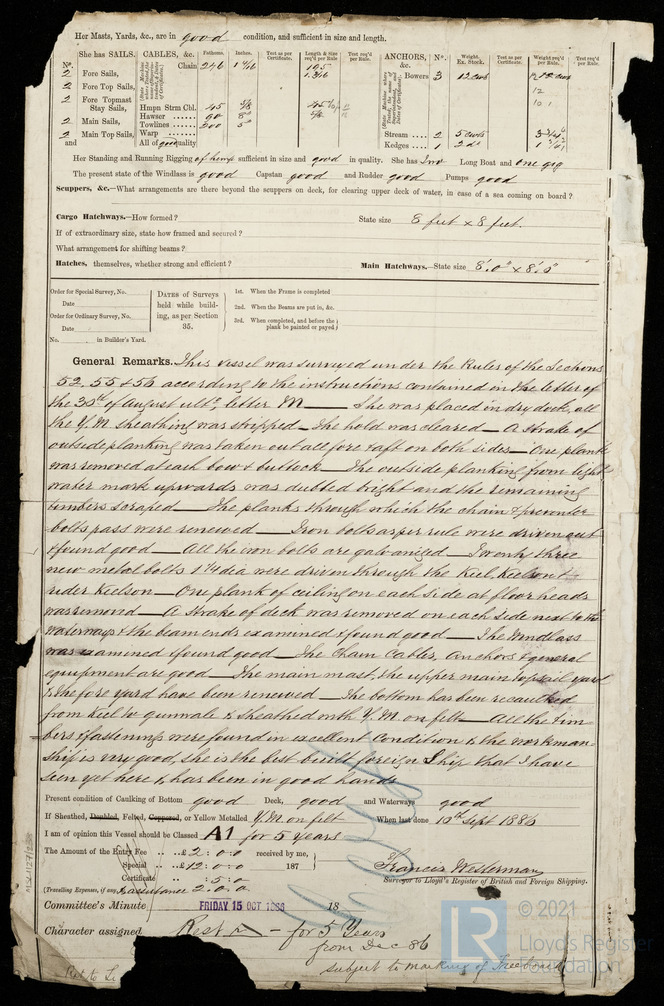 Her Masts, Yards, &c., are in good condition, and sufficient in size and length.
She has SAILS.
CABLES, &c.
Fathoms.
Inches.
Test as per Certificate.
Length & size req'd per Rule
Test req'd per Rule.
ANCHORS, &c.
N°.
Weight. Ex. Stock.
Test as per Certificate.
Weight req'd per Rule.
Test req'd per Rule.
N°.
2 Fore Sails,
Chain 246 1 7/16
Bowers 3 12 cwts
12
10 1
2 Fore Top Sails,
2 Fore Topmast Stay Sails,
Hmpn Strm Cbl. 45
2 Main Sails,
Hawser 90
Towlines 200 5"
Stream 2 5 cwts
2 Main Top Sails,
Warp
Kedges 1
and
All of good quality
Her Standing and Running Rigging of hemp sufficient in size and good in quality. She has Two Long Boat and one gig
The present state of the Windlass is good Capstan good and Rudder good Pumps good
Scuppers, &c.—What arrangements are there beyond the scuppers on deck, for clearing upper deck of water, in case of a sea coming on board?
Cargo Hatchways.—How formed? State size 8 feet x 8 feet.
If of extraordinary size, state how framed and secured?
What arrangement for shifting beams?
Hatches, themselves, whether strong and efficient? Main Hatchways.—State size 8'.0" x 8'.0"
Order for Special Survey, No.
Date
Order for Ordinary Survey, No.
Date
No. in Builder's Yard.
DATES of Surveys held while building, as per Section 35.
1st. When the Frame is completed
2nd. When the Beams are put in, &c.
3rd. When completed, and before the plank be painted or payed
General Remarks. This vessel was surveyed under the Rules of the Sections
52. 55 & 56 according to the instructions contained in the letter of
the 30th of August ulto, letter M — She was placed in dry dock, all
the Y.M sheathing was stripped — The hold was cleared — A strake of
outside planking was taken out all fore & aft on both sides — One plank
was removed at each bow & buttock — The outside planking from light
water mark upwards was dubbed bright and the remaining
timbers scraped — The planks through which the chain & preventer
bolts pass were renewed — Iron bolts as per rule were driven out
& found good — All the iron bolts are galvanised — Twenty three
new metal bolts 1 1/4 dia were driven through the Keel, Keelson &
rider keelson — One plank of ceiling on each side at floor heads
was removed — A strake of deck was removed on each side next to the
waterways & the beam ends examined & found good — The Windlass
was examined & found good — The Chain Cables, Anchors & general
equipment are good — The main mast, the upper main topsail yard
& the fore yard have been renewed — The bottom has been recaulked
from keel to gunwale & sheathed with Y.M on felt — All the tim-
bers & fastenings were found in excellent condition & the workman-
ship is very good, she is the best built foreign ship that I have
seen yet here & has been in good hands
Present condition of Caulking of Bottom good Deck, good and Waterways good
If Sheathed, Doubled, Felted, Coppered, or Yellow Metalled Y.M on felt When last done 10th Sept 1886
I am of opinion this Vessel should be Classed A1 for 5 years
The Amount of the Entry Fee .. .. £ 2 : 0 : 0 received by me,
Special .. .. £ 12 : 0 : 0 187
Certificate .. : 5 : 0
(Travelling Expenses, if any, 2.0.0
Francis Westerman
Surveyor to Lloyd's Register of British and Foreign Shipping.
Committee's Minute FRIDAY 15 OCT 1886 18
Character assigned
for 5 Years
from Dec 86
subject to marking of Freeboard
© 2021
LR
Lloyd's Register
Foundation